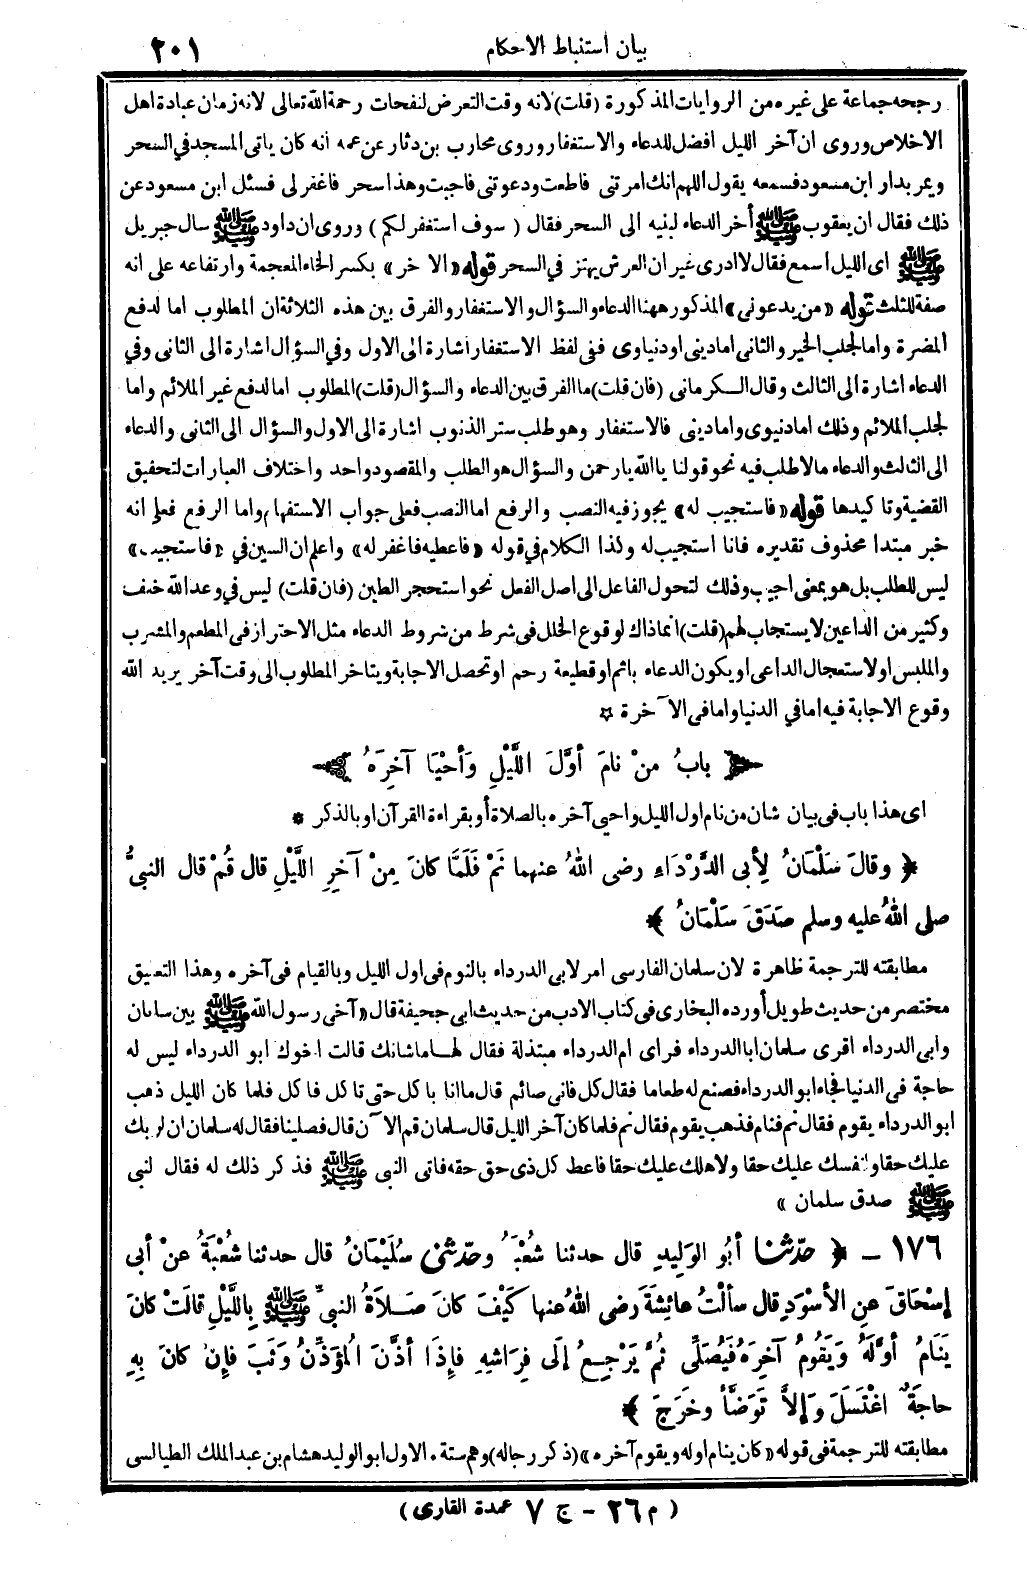 بيان استنباط الاحكام
٢٠١
رجحه جماعة على غيره من الروايات المذكورة (قلت) لانه وقت التعرض لنفحات رحمة الله تعالى لانه زمان عبادة اهل
الاخلاص وروى ان آخر الليل افضل للدعاء والاستغفار وروى محارب بن دثار عن عمه انه كان ياتى المسجد في السحر
ويمر بدار ابن مسعود فسمعه يقول اللهم انك امرتنى فاطعت ودعوتنى فاجبت وهذا سحر فاغفر لى فسئل ابن مسعود عن
ذلك فقال ان يعقوب ﷺ أخر الدعاء لبنيه الى السحر فقال ( سوف استغفر لكم ) وروى ان داود ﷺ سال جبريل
ﷺ اى الليل اسمع فقال لا ادرى غير ان العرش يهتز في السحر قوله «الاخر» بكسر الخاء المعجمة وارتفاعه على انه
صفة للثلث قوله «من يدعونى» المذكور ههنا الدعاء والسؤال والاستغفار والفرق بين هذه الثلاثة ان المطلوب اما لدفع
المضرة واما لجلب الخير والثانى اما دينى او دنياوى ففى لفظ الاستغفار اشارة الى الاول وفي السؤال اشارة الى الثانى وفي
الدعاء اشارة الى الثالث وقال الكرمانى (فان قلت) ما الفرق بين الدعاء والسؤال (قلت) المطلوب اما لدفع غير الملائم واما
لجلب الملائم وذلك اما دنيوى واما دينى فالاستغفار وهو طلب ستر الذنوب اشارة الى الاول والسؤال الى الثانى والدعاء
الى الثالث والدعاء مالا طلب فيه نحو قولنا يا الله يا رحمن والسؤال هو الطلب والمقصود واحد واختلاف العبارات لتحقيق
القضية وتاكيدها قوله «فاستجيب له» يجوز فيه النصب والرفع اما النصب فعلى جواب الاستفهام واما الرفع فعلى انه
خبر مبتدا محذوف تقديره فانا استجيب له وكذا الكلام في قوله «فاعطيه فاغفر له» واعلم ان السين في «فاستجيب»
ليس للطلب بل هو بمعنى اجيب وذلك لتحول الفاعل الى اصل الفعل نحو استحجر الطين (فان قلت) ليس في وعد الله خلف
وكثير من الداعين لا يستجاب لهم (قلت) انما ذاك لوقوع الخلل في شرط من شروط الدعاء مثل الاحتراز في المطعم والمشرب
والملبس او لاستعجال الداعى او يكون الدعاء باثم او قطيعة رحم او تحصل الاجابة ويتاخر المطلوب الى وقت آخر يريد الله
وقوع الاجابة فيه اما في الدنيا واما في الآخرة ☆
﴿ بابُ منْ نامَ أوَّلَ اللَّيْلِ وَأحْيَا آخِرَهُ ﴾
اى هذا باب في بيان شان من نام اول الليل واحيى آخره بالصلاة أو بقراءة القرآن او بالذكر *
﴿ وقالَ سَلْمَانُ لِأبى الدَّرْدَاءِ رضى اللهُ عنهما نَمْ فَلَمَّا كانَ مِنْ آخِرِ اللَّيْلِ قال قُمْ قال النبىُّ
صلى اللهُ عليه وسلم صَدَقَ سَلْمَانُ ﴾
مطابقته للترجمة ظاهرة لان سلمان الفارسى امر لابى الدرداء بالنوم في اول الليل وبالقيام في آخره وهذا التعليق
مختصر من حديث طويل أورده البخارى في كتاب الادب من حديث ابى جحيفة قال «آخى رسول الله ﷺ بين سلمان
وابى الدرداء فزار سلمان ابا الدرداء فراى ام الدرداء مبتذلة فقال لها ما شانك قالت اخوك ابو الدرداء ليس له
حاجة في الدنيا فجاء ابو الدرداء فصنع له طعاما فقال كل فانى صائم قال ما انا باكل حتى تاكل فاكل فلما كان الليل ذهب
ابو الدرداء يقوم فقال نم فنام فذهب يقوم فقال نم فلما كان آخر الليل قال سلمان قم الآن قال فصلينا فقال له سلمان ان لربك
عليك حقا ولنفسك عليك حقا ولاهلك عليك حقا فاعط كل ذى حق حقه فاتى النبى ﷺ فذكر ذلك له فقال لنبى
ﷺ صدق سلمان »
١٧٦ - ﴿ حدّثنا أبُو الوَلِيدِ قال حدثنا شُعْبَةُ وحدّثنى سُلَيْمَانُ قال حدثنا شُعْبَةُ عنْ أبى
إسْحَاقَ عنِ الأسْوَدِ قال سألْتُ عائِشَةَ رضى اللهُ عنها كَيْفَ كانَ صَلاَةُ النبىِّ ﷺ بِاللَّيْلِ قالَتْ كانَ
يَنَامُ أوَّلَهُ ويَقُومُ آخِرَهُ فَيُصَلِّى ثُمَّ يَرْجِعُ إلَى فِرَاشِهِ فإذَا أذَّنَ المُؤَذِّنُ وَثَبَ فإنْ كانَ بِهِ
حاجَةٌ اغْتَسَلَ وَإلاَّ تَوَضَّأ وخَرَجَ ﴾
مطابقته للترجمة في قوله «كان ينام اوله ويقوم آخره» (ذكر رجاله) وهم ستة. الاول ابو الوليد هشام بن عبد الملك الطيالسى
( م ٢٦ - ج ٧ عمدة القارى )